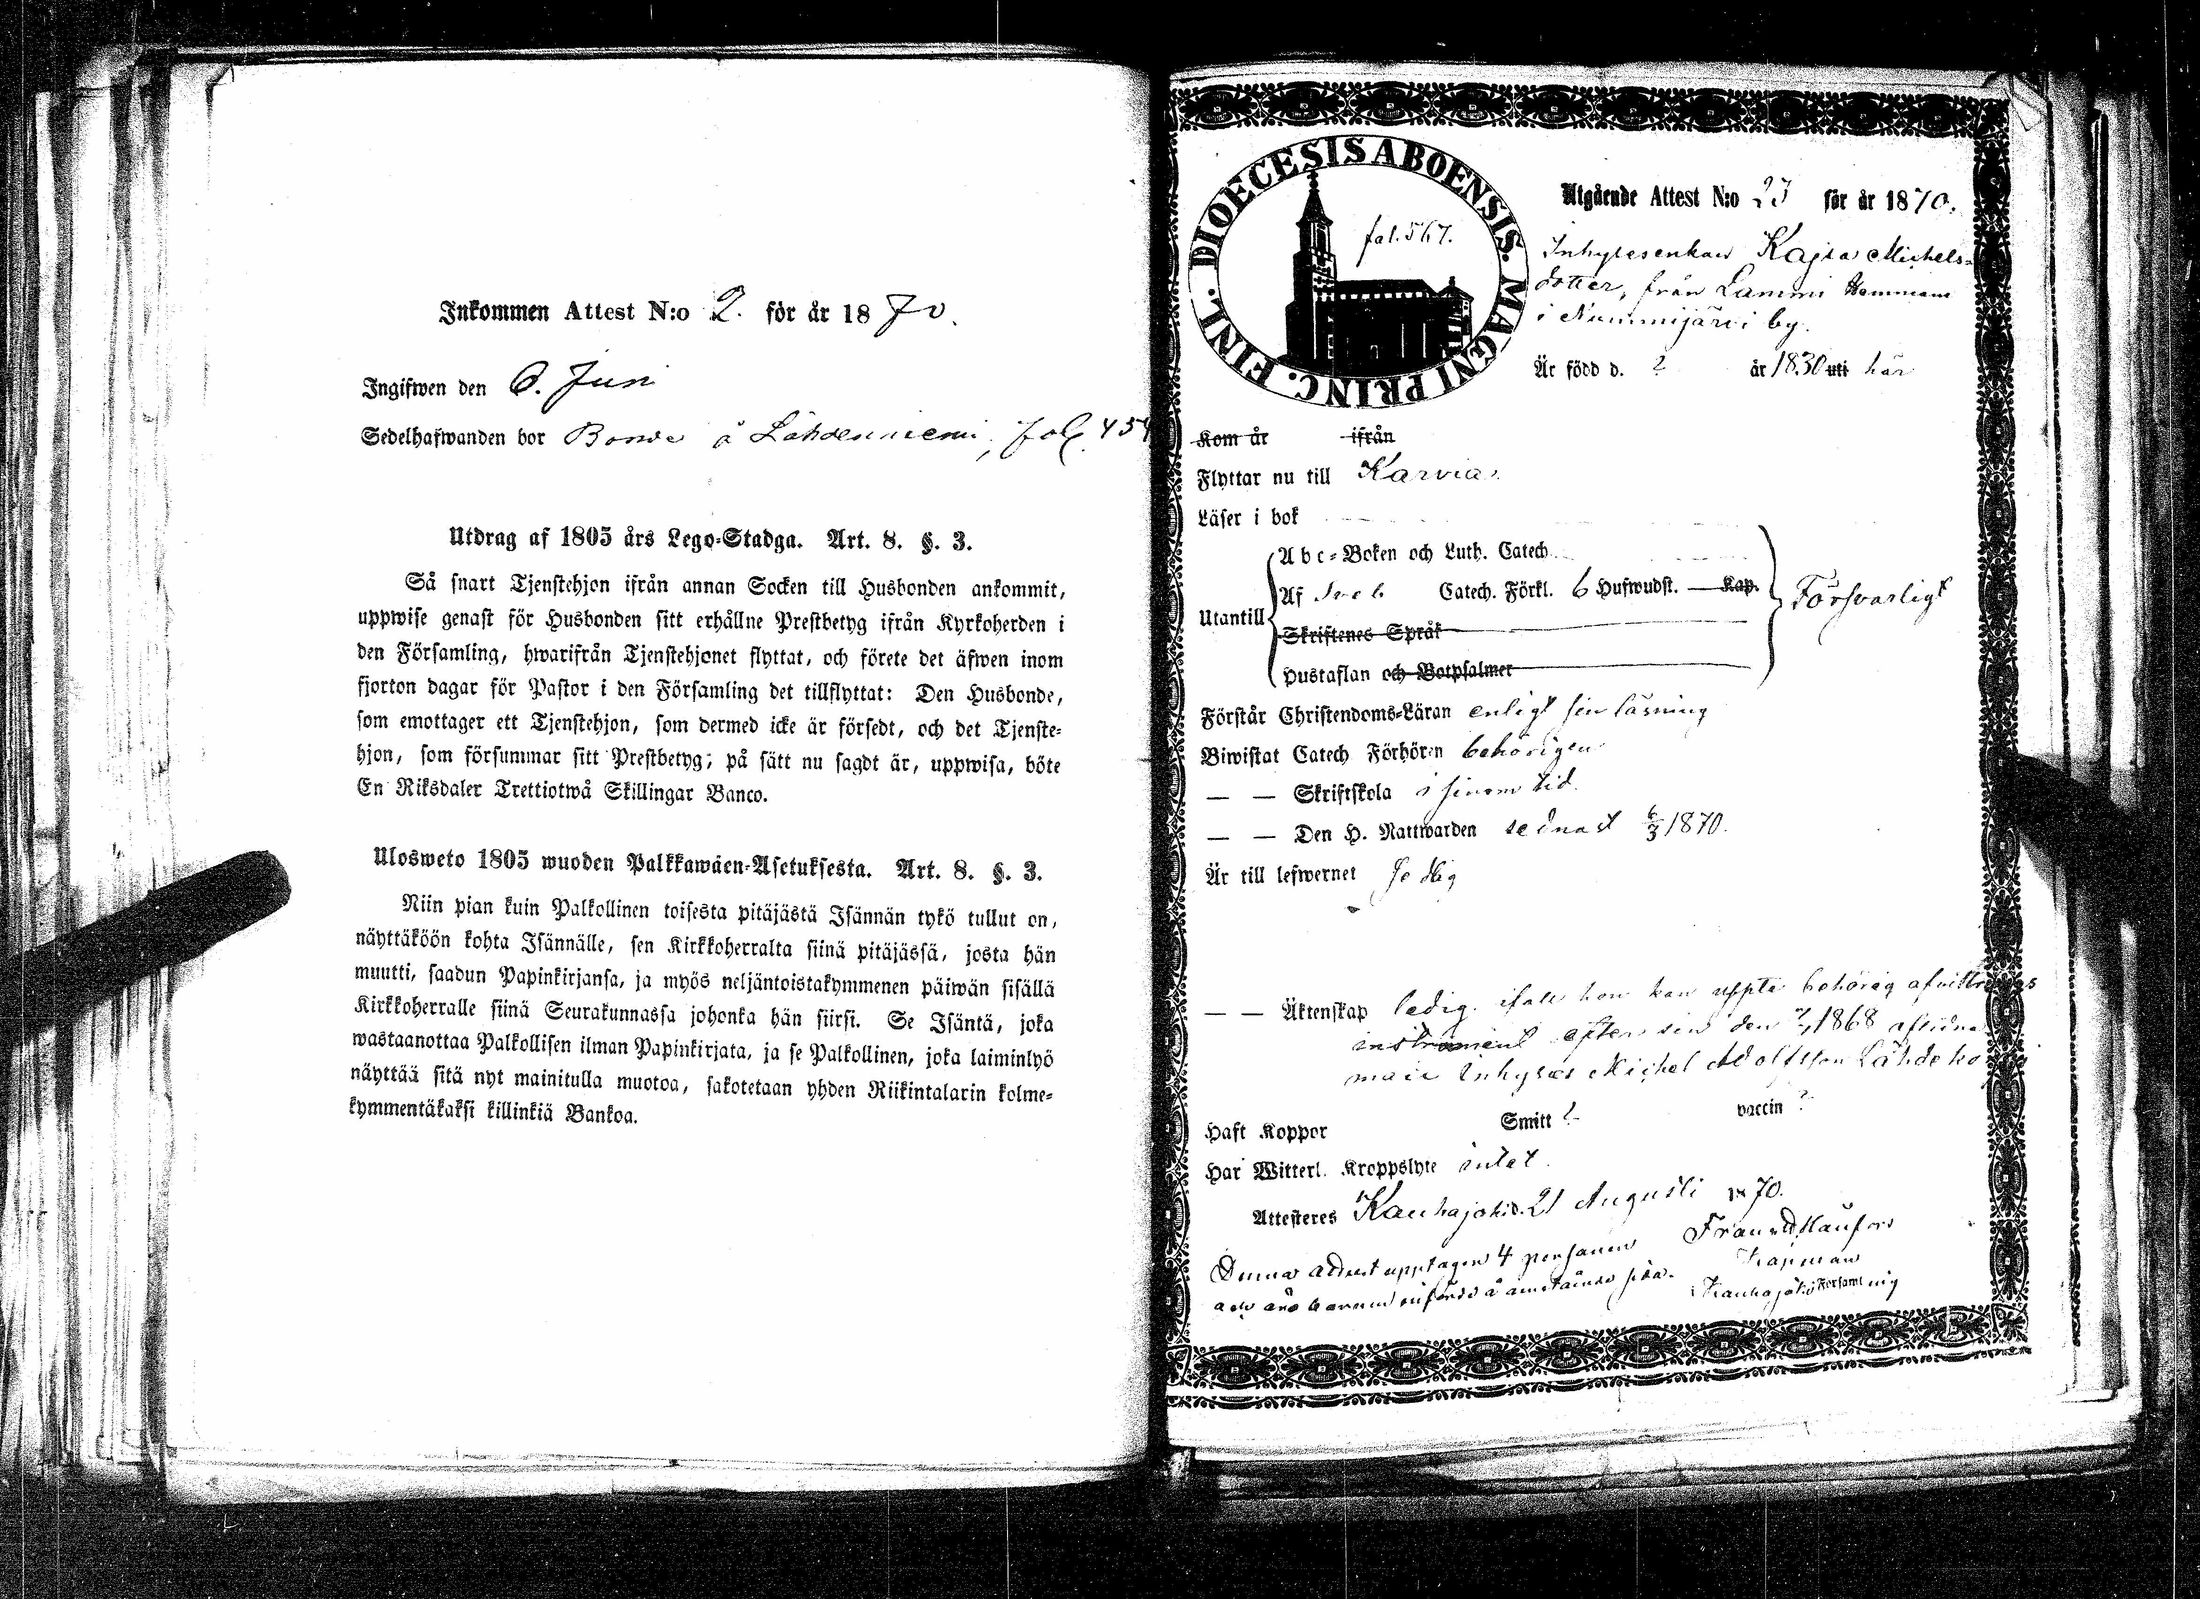 Inkommen Attest N:o 2. för år 1870.
Ingifwen den 6. Juni
Sedelhafwanden bor Bonde å Lähdenniemi, fol. 454
Utdrag af 1805 års Lego-Stadga. Art. 8. §. 3.
Så snart Tjenstehjon ifrån annan Socken till Husbonden ankommit,
uppwise genast för Husbonden sitt erhållne Prestbetyg ifrån Kyrkoherden i
den Församling, hwarifrån Tjenstehjonet flyttat, och förete det äfwen inom
fjorton dagar för Pastor i den Församling det tillflyttat: Den Husbonde,
som emottager ett Tjenstehjon, som dermed icke är försedt, och det Tjenste-
hjon, som försummar sitt Prestbetyg; på sätt nu sagdt är, uppwisa, böte
En Riksdaler Trettiotwå Skillingar Banco.
Ulosweto 1805 wuoden Palkkawäen-Asetuksesta. Art. 8. §. 3.
Niin pian kuin Palkollinen toisesta pitäjästä Isännän tykö tullut on,
näyttäköön kohta Isännälle, sen Kirkkoherralta siinä pitäjässä, josta hän
muutti, saadun Papinkirjansa, ja myös neljäntoistakymmenen päiwän sisällä
Kirkkoherralle siinä Seurakunnassa johonka hän siirsi. Se Isäntä, joka
wastaanottaa Palkollisen ilman Papinkirjata, ja se Palkollinen, joka laiminlyö
näyttää sitä nyt mainitulla muotoa, sakotetaan yhden Riikintalarin kolme-
kymmentäkaksi killinkiä Bankoa.
DIOECESIS ABOENSIS. MAGNI PRINC. FINL.
fol. 567.
Utgående Attest N:o 23 för år 1870.
Inhysesenkan Kajsa Michels-
dotter, från Lammi Hemman
i Nummijärvi by.
Är född d. ? år 1830 uti här
Kom år ifrån
Flyttar nu till Karvia
Läser i bok
Utantill
Abc-Boken och Luth. Catech.
Af Catech. Förkl. 6 Hufwudst. Kap.
Skriftenes Språk
Hustaflan och Botpsalmer
Försvarligt
Förstår Christendoms-Läran enligt sin läsning
Biwistat Catech Förhören behörigen
— — Skriftskola i sinom tid.
— — Den H. Nattwarden sednast 6/3 1870.
Är till lefwernet fredlig
— — Äktenskap ledig. ifall hon kan uppte behörig afvittrings
instrument efter sin den 1868 aflidna
man Inhyses Michel Adolfsson Lähdeko
Haft Koppor Smitt ? vaccin ?
Har Witterl. Kroppslyte intet.
Attesteres Kauhajoki d. 21 Augusti 1870.
Denna attest upptager 4 personer
Kapman
Kauhajoki Församlning